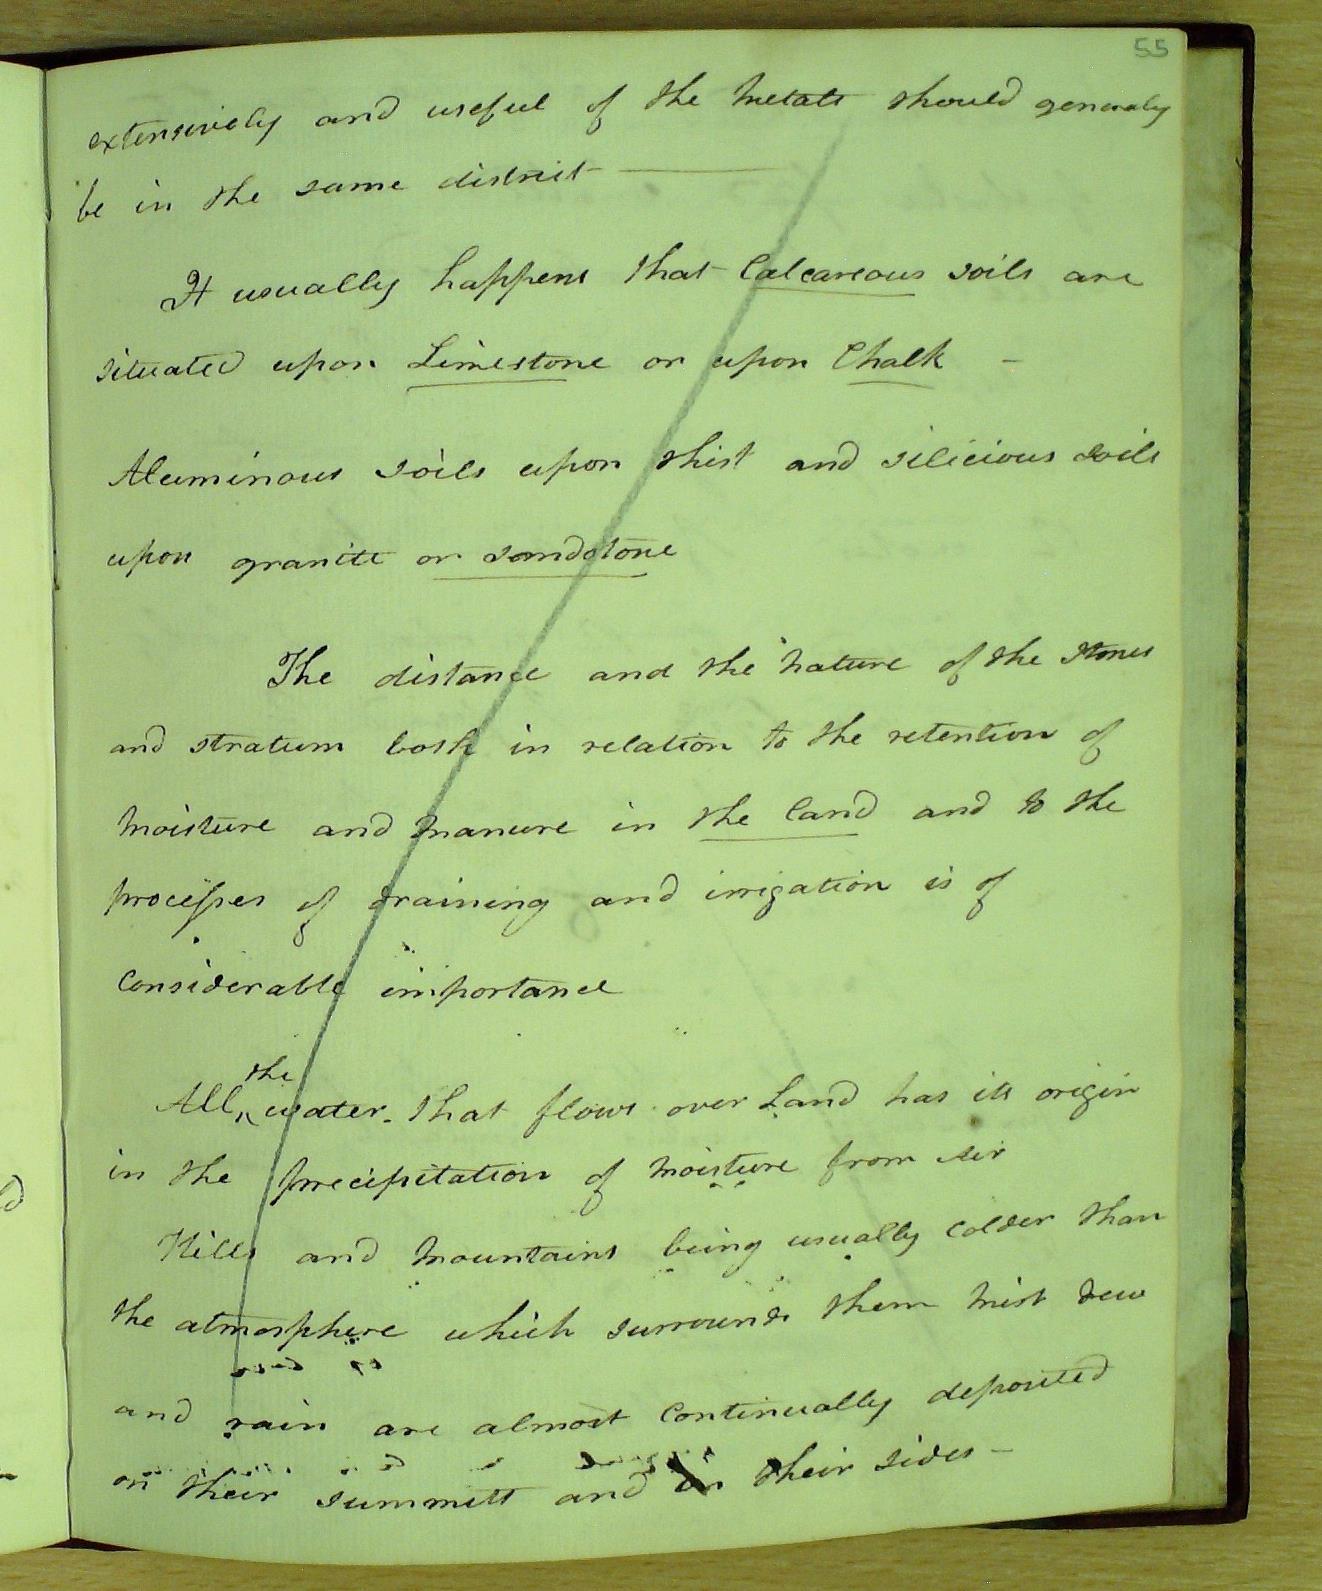 55
extensively and useful of the metals should generaly
be in the same district
It usually happens that Calcareous soils are
situated upon Limestone or upon Chalk -
Aluminous soils upon shist and silicious soils
upon granite or sandstone
The distance and the nature of the stones
and stratum both in relation to the retention of
moisture and manure in the land and to the
processes of draining and irrigation is of
considerable importance
All the water that flows over Land has its origin
in the precipitation of moisture from air
Hills and mountains being usually colder than
the atmosphere which surrounds them mist dew
and rain are almost continually deposited
on their summitt and on their sides -